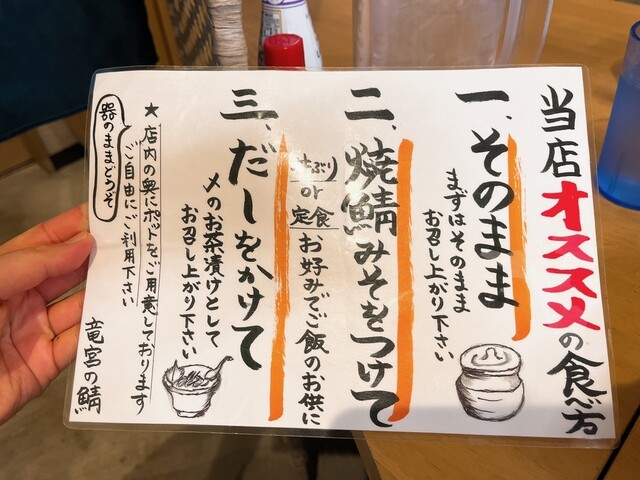 当店オススメの食べ方
一、そのまま
まずはそのまま
お召し上がり下さい
二、焼鯖みそをつけて
丼ぶり
or
定食
お好みでご飯のお供に
三、だしをかけて
〆のお茶漬けとして
お召し上がり下さい
★店内の奥にポットをご用意しております
ご自由にご利用下さい
器のままどうぞ
竜宮の鯖